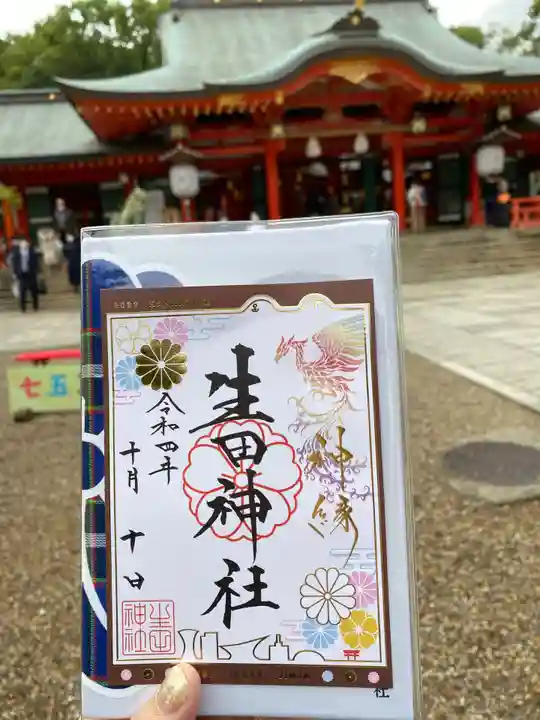 神縁
生田神社
令和四年
十月 十日
生田
神社
七五
社